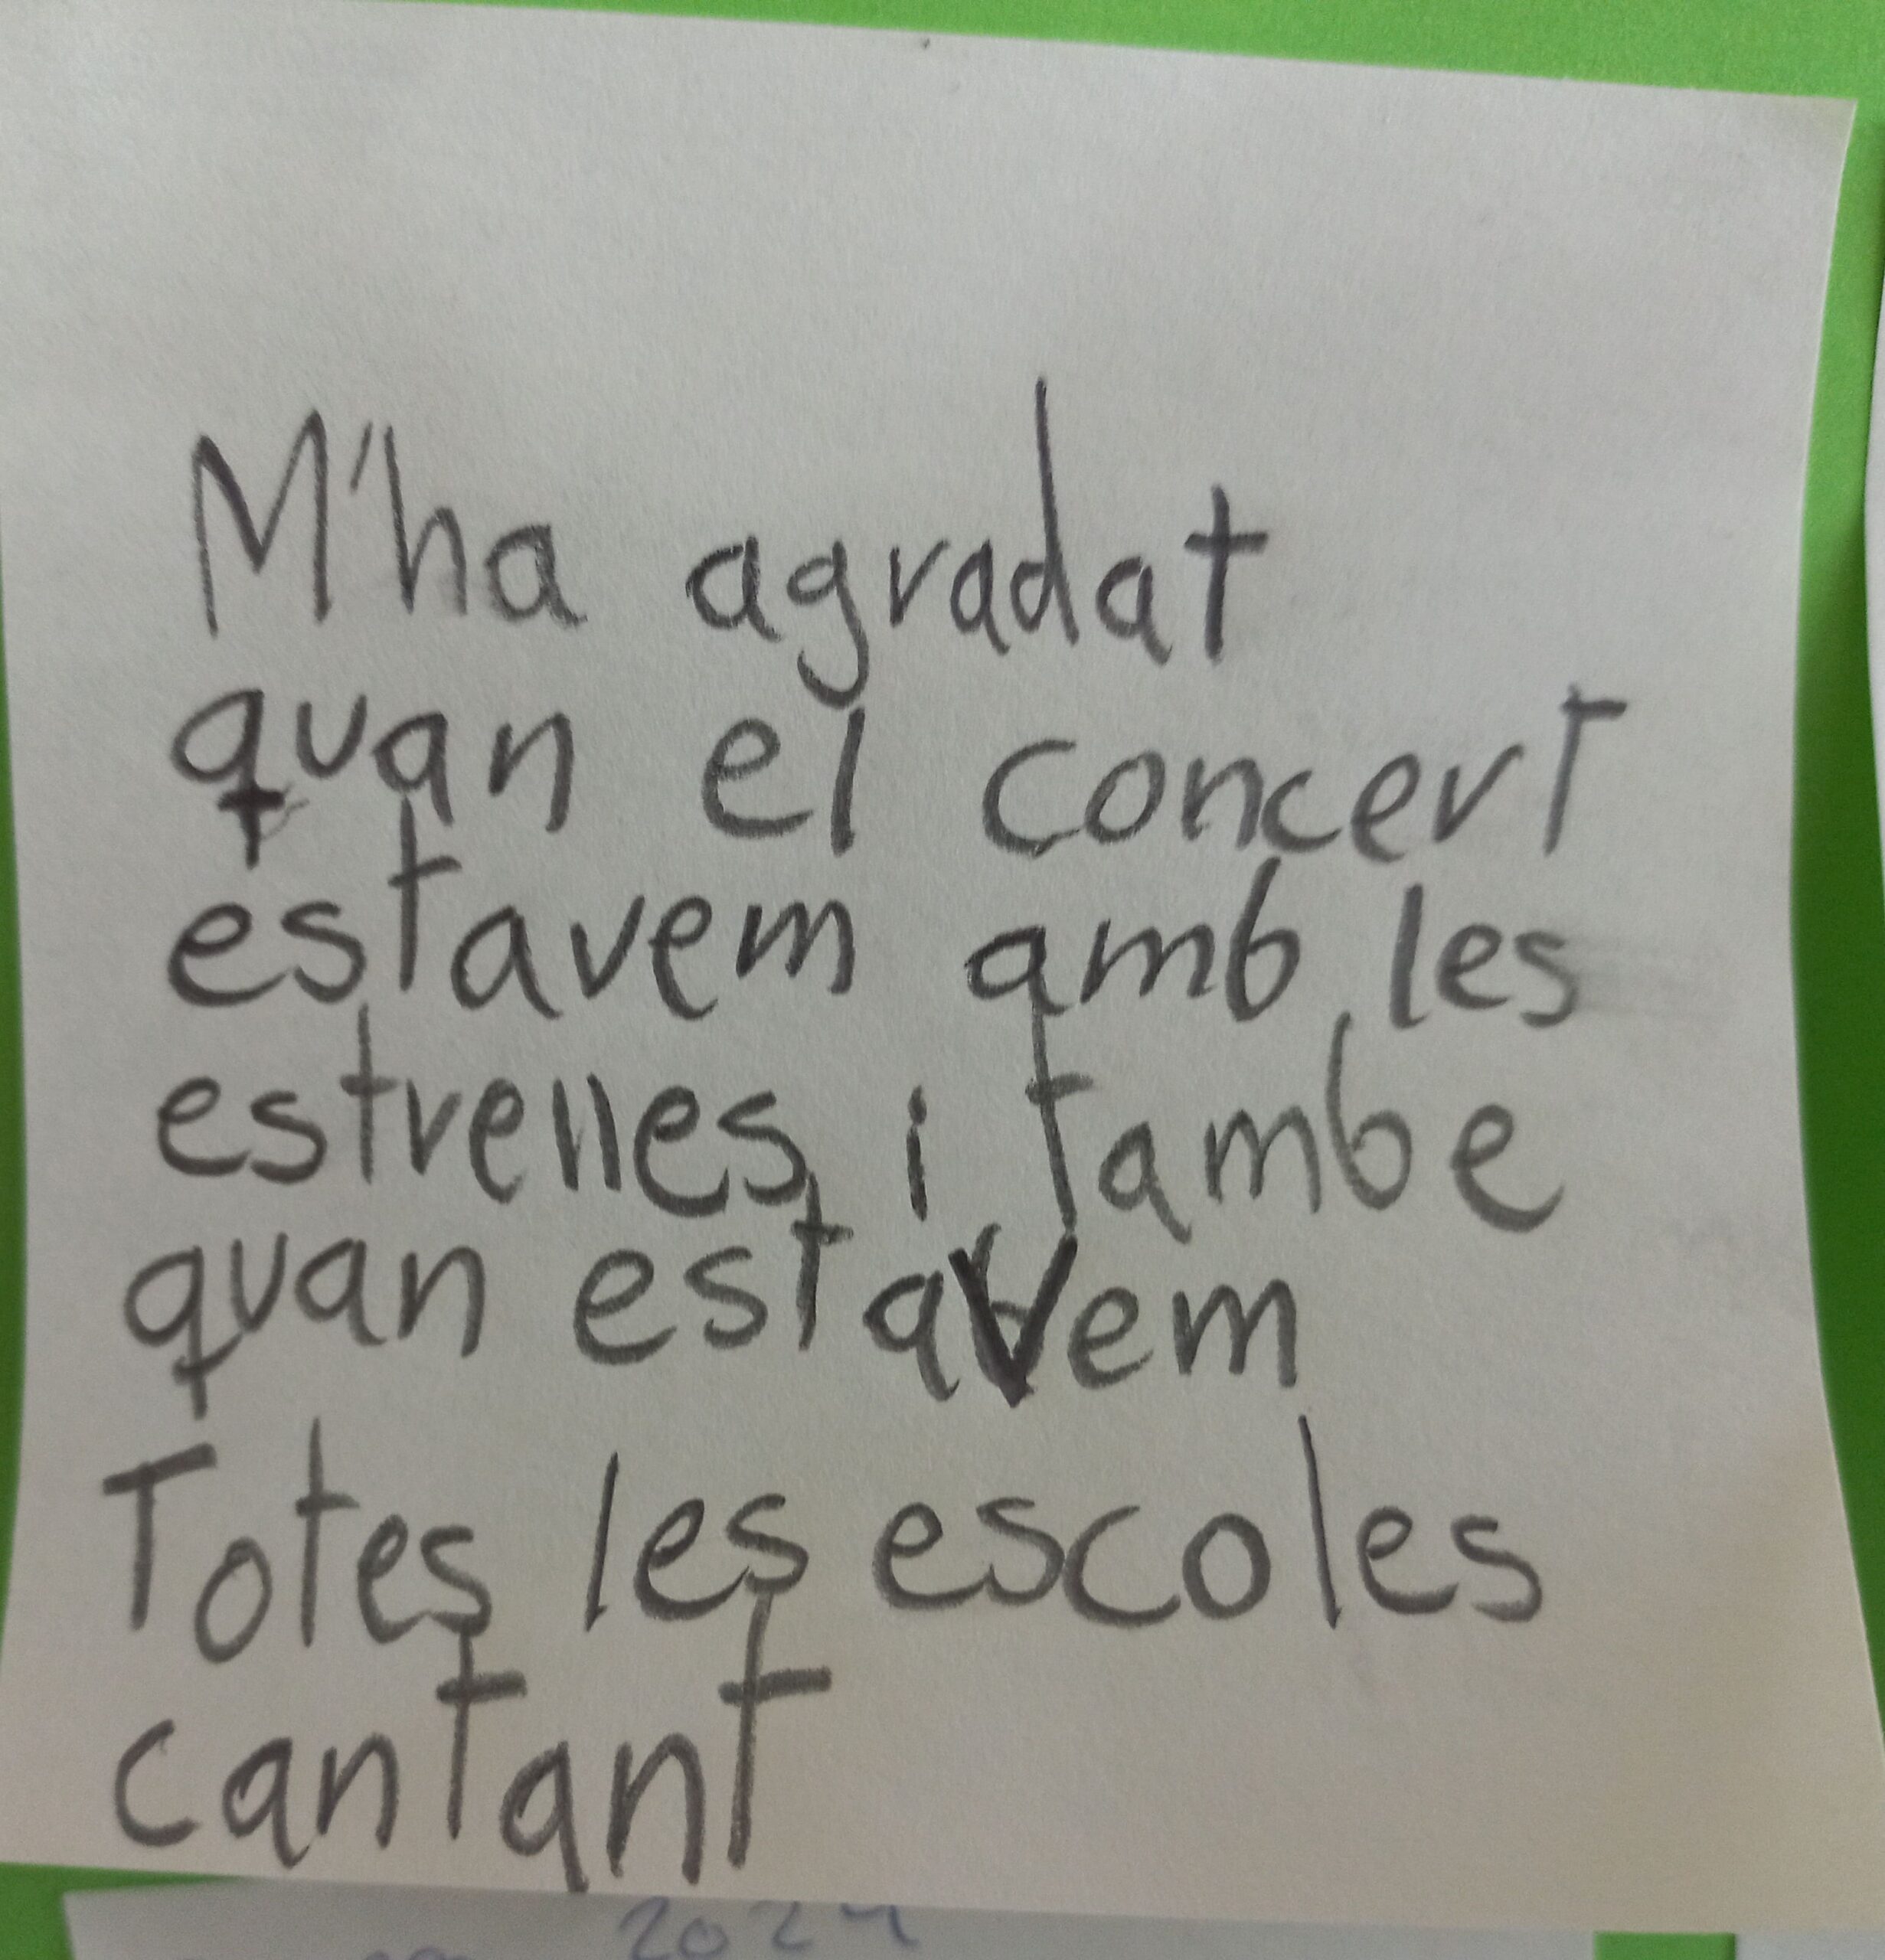 M'ha agradat
quan el concert
estavem amb les
estrelles i tambe
quan estavem
Totes les escoles
cantant
2024